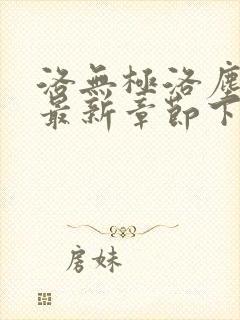 洛無極洛塵
最新章節下
房妹